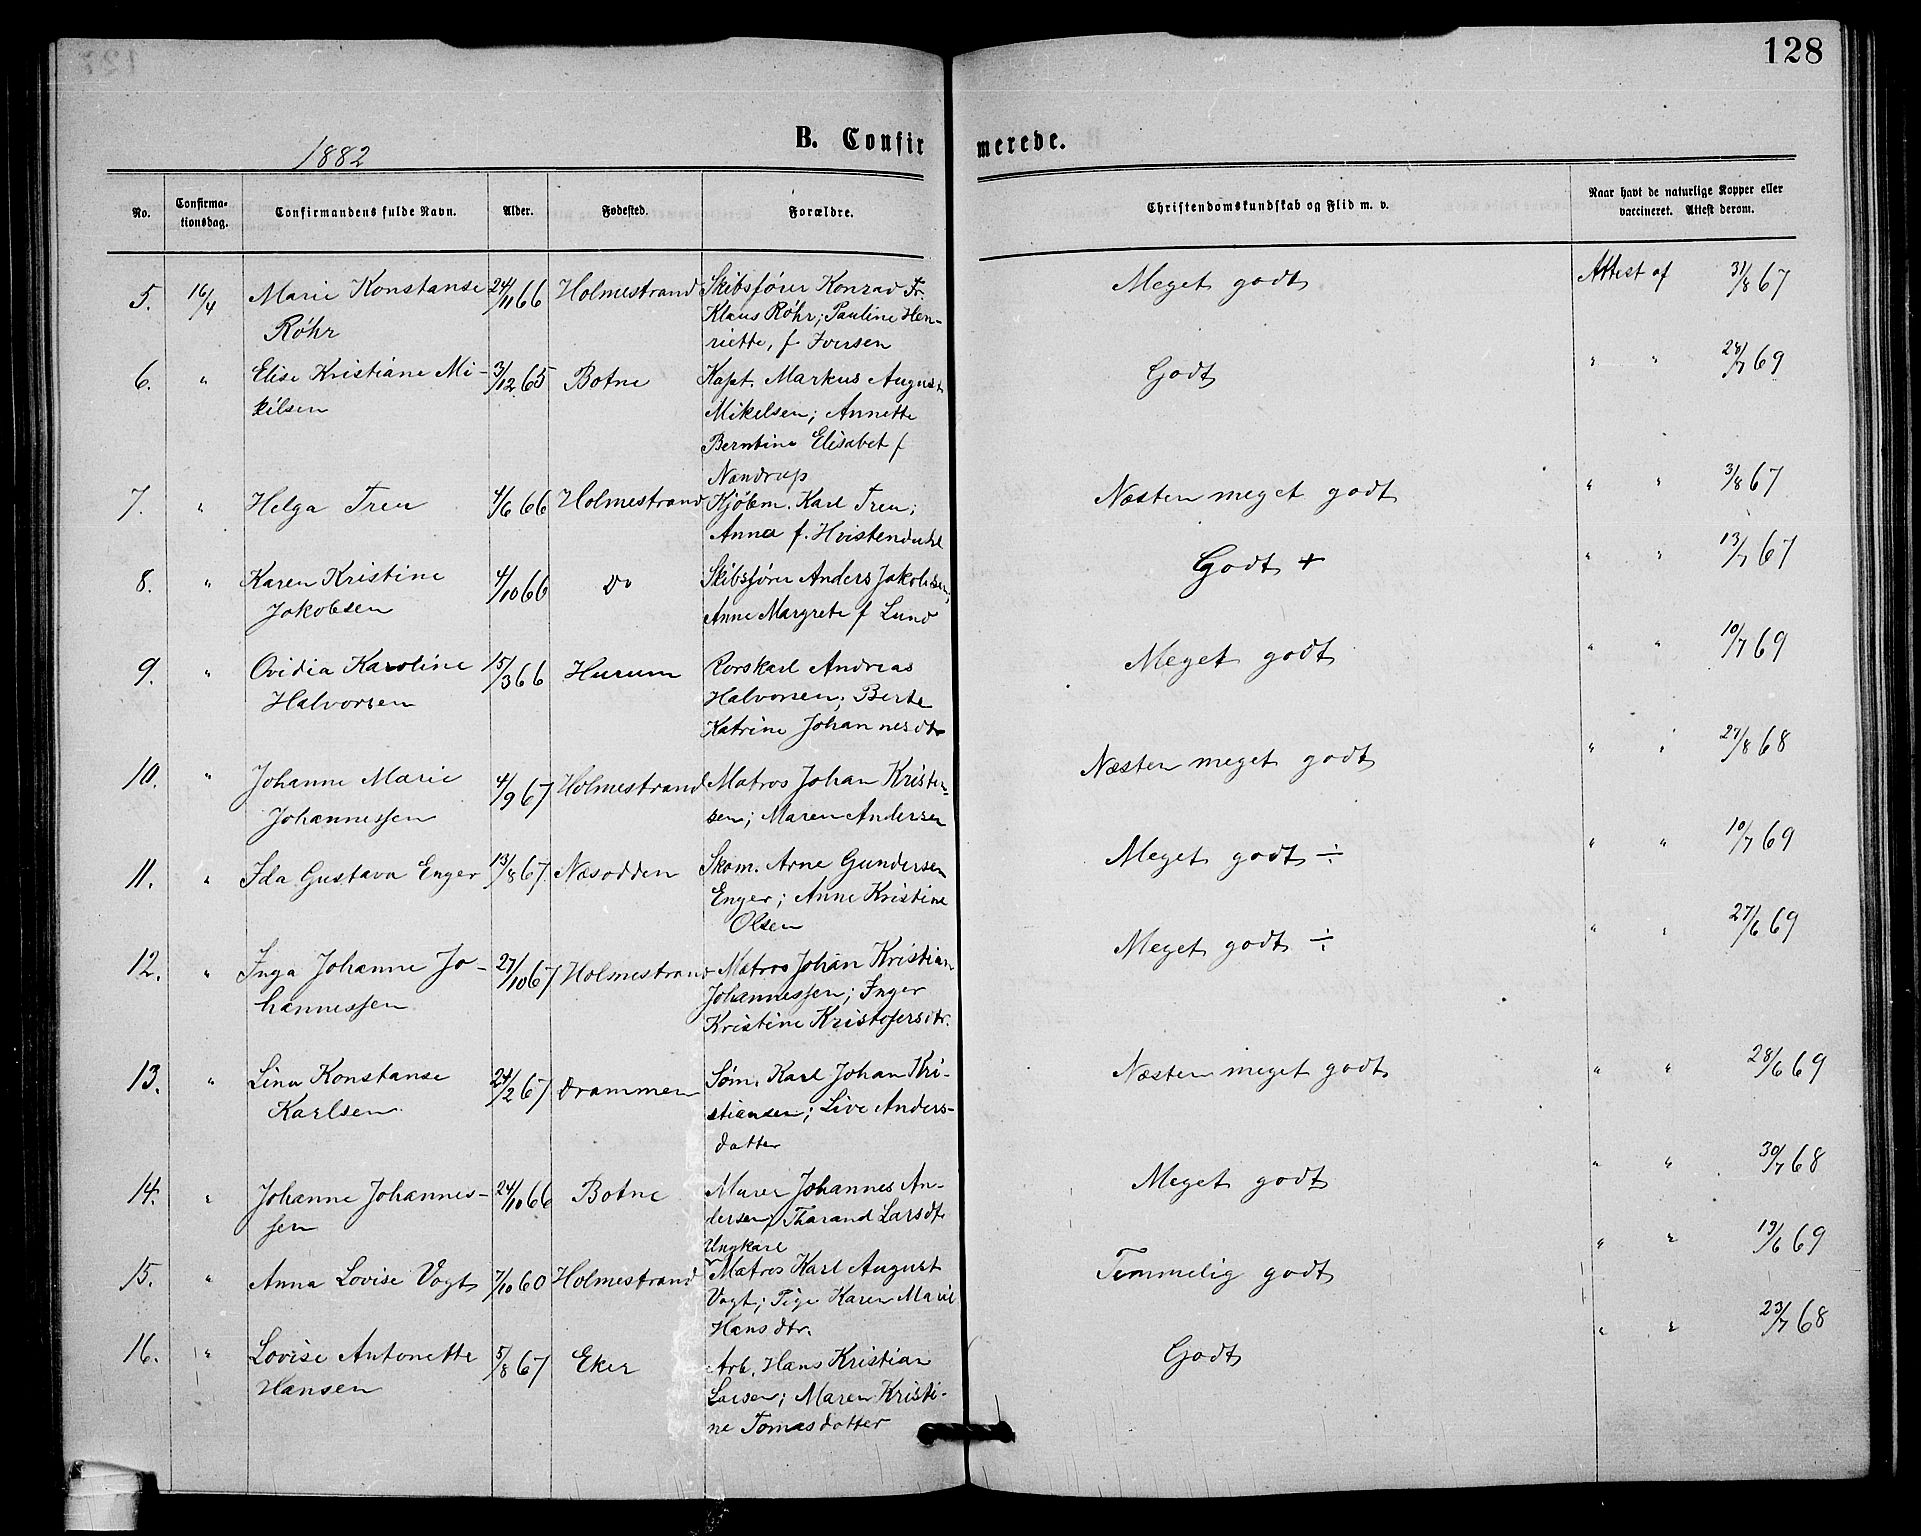 128
1882
B. Confirmerede.
No. Confirmationsdag. Confirmandens fulde Navn. Alder. Fødested. Forældre. Christendomskundskab og Flid m. v. Naar havt de naturlige Kopper eller vaccineret. Attest derom.
5. 16/4 Marie Konstanse 24/11 66 Holmestrand Skibsfører Konrad Fr. Meget godt Attest af 31/8 67
Røhr Klaus Røhr; Pauline Hen-
riette, f Iversen
6. " Elise Kristiane Mi- 3/12 65 Botne Kapt. Markus August Godt " " 28/7 69
kilsen Mikelsen; Annette
Berntine Elisabet f
Nandrup
7. " Helga Treu 4/6 66 Holmestrand Kjøbm. Karl Treu; Næsten meget godt " " 3/8 67
Anna f. Hvistendahl
8. " Karen Kristine 4/10 66 Do Skibsfører Anders Jakobsen, Godt + " " 13/7 67
Jakobsen Anne Margrete f Lund
9. " Ovidia Karoline 15/3 66 Hurum Rorskarl Andreas Meget godt " " 10/7 69
Halvorsen Halvorsen; Berte
Katrine Johannesdtr
10. " Johanne Marie 4/9 67 Holmestrand Matros Johan Kristen- Næsten meget godt " " 27/8 68
Johannessen sen; Maren Andersen
11. " Ida Gustava Enger 13/8 67 Næsodden Skom. Arne Gundersen Meget godt ÷ " " 10/7 69
Enger; Anne Kristine
Olsen
12. " Inga Johanne Jo- 27/10 67 Holmestrand Matros Johan Kristian Meget godt ÷ " " 27/6 69
hannessen Johannessen; Inger
Kristine Kristofersdtr.
13. " Lina Konstanse 24/2 67 Drammen Søm. Karl Johan Kri- Næsten meget godt " " 28/6 69
Karlsen stiansen; Live Anders-
datter
14. " Johanne Johannes- 24/10 66 Botne Murer Johannes An- Meget godt " " 30/7 68
sen dersen; Tharand Larsdtr
Ungkarl
15. " Anna Lovise Vogt 7/10 60 Holmestrand Matros Karl August Temmelig godt " " 19/6 69
Vogt; Pige Karen Marie
Hansdtr.
16. " Lovise Antonette 5/8 67 Eker Arb. Hans Kristian Godt " " 23/7 68
Hansen Larsen; Maren Kristi-
ne Tomasdatter